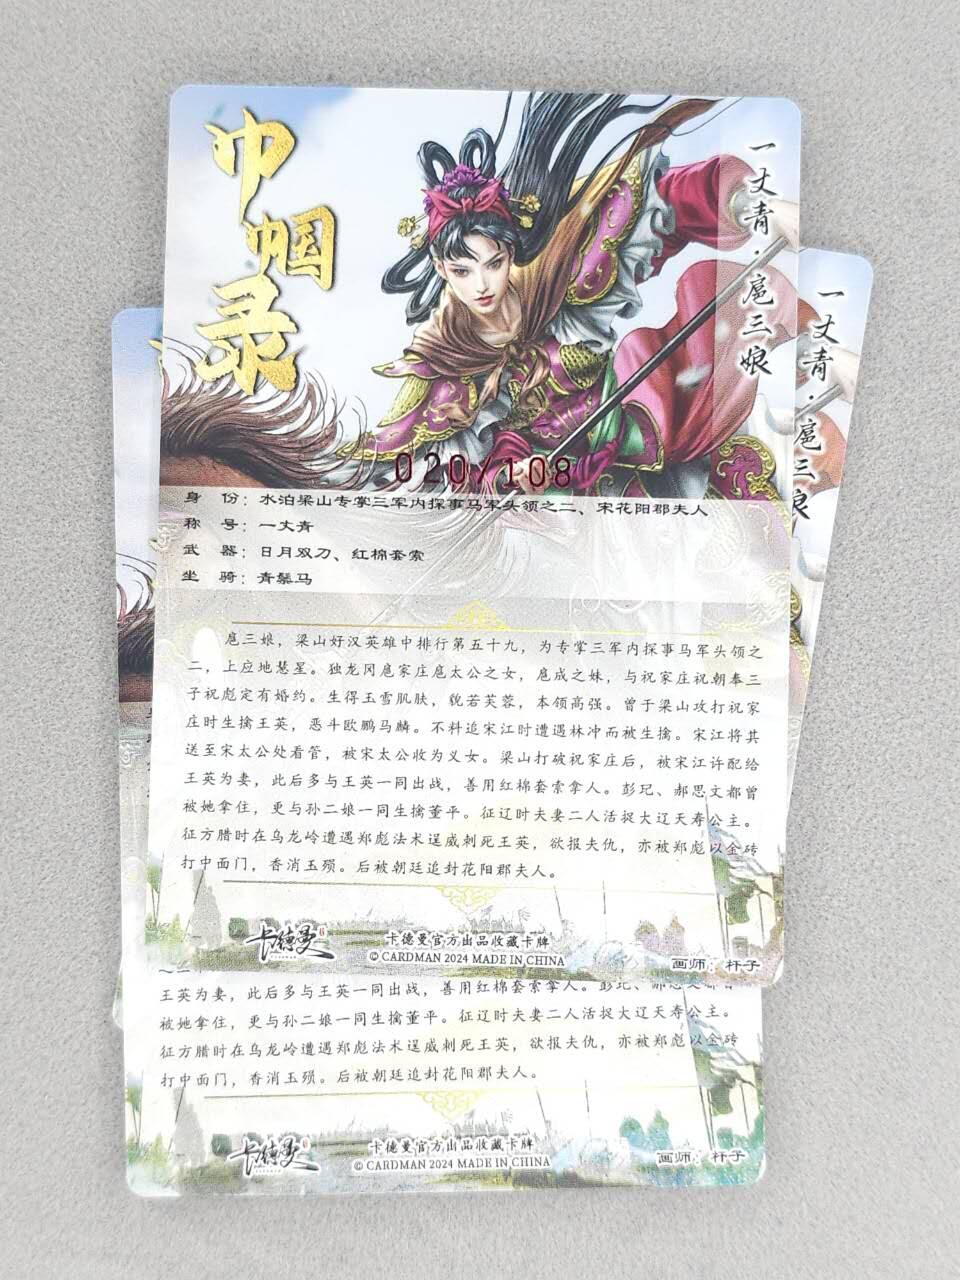 巾帼录
一丈青·扈三娘
020/108
身 份：水泊梁山专掌三军内探事马军头领之二、宋花阳郡夫人
称 号：一丈青
武 器：日月双刀、红棉套索
坐 骑：青鬃马
扈三娘，梁山好汉英雄中排行第五十九，为专掌三军内探事马军头领之
二，上应地慧星。独龙冈扈家庄扈太公之女，扈成之妹，与祝家庄祝朝奉三
子祝彪定有婚约。生得玉雪肌肤，貌若芙蓉，本领高强。曾于梁山攻打祝家
庄时生擒王英，恶斗欧鹏马麟。不料追宋江时遭遇林冲而被生擒。宋江将其
送至宋太公处看管，被宋太公收为义女。梁山打破祝家庄后，被宋江许配给
王英为妻，此后多与王英一同出战，善用红棉套索拿人。彭玘、郝思文都曾
被她拿住，更与孙二娘一同生擒董平。征辽时夫妻二人活捉大辽天寿公主。
征方腊时在乌龙岭遭遇郑彪法术逞威刺死王英，欲报夫仇，亦被郑彪以金砖
打中面门，香消玉殒。后被朝廷追封花阳郡夫人。
卡德曼
卡德曼官方出品收藏卡牌
© CARDMAN 2024 MADE IN CHINA
画师：杆子
一丈青·扈三娘
王英为妻，此后多与王英一同出战，善用红棉套索拿人。彭玘、郝思文都曾
被她拿住，更与孙二娘一同生擒董平。征辽时夫妻二人活捉大辽天寿公主。
征方腊时在乌龙岭遭遇郑彪法术逞威刺死王英，欲报夫仇，亦被郑彪以金砖
打中面门，香消玉殒。后被朝廷追封花阳郡夫人。
卡德曼
卡德曼官方出品收藏卡牌
© CARDMAN 2024 MADE IN CHINA
画师：杆子